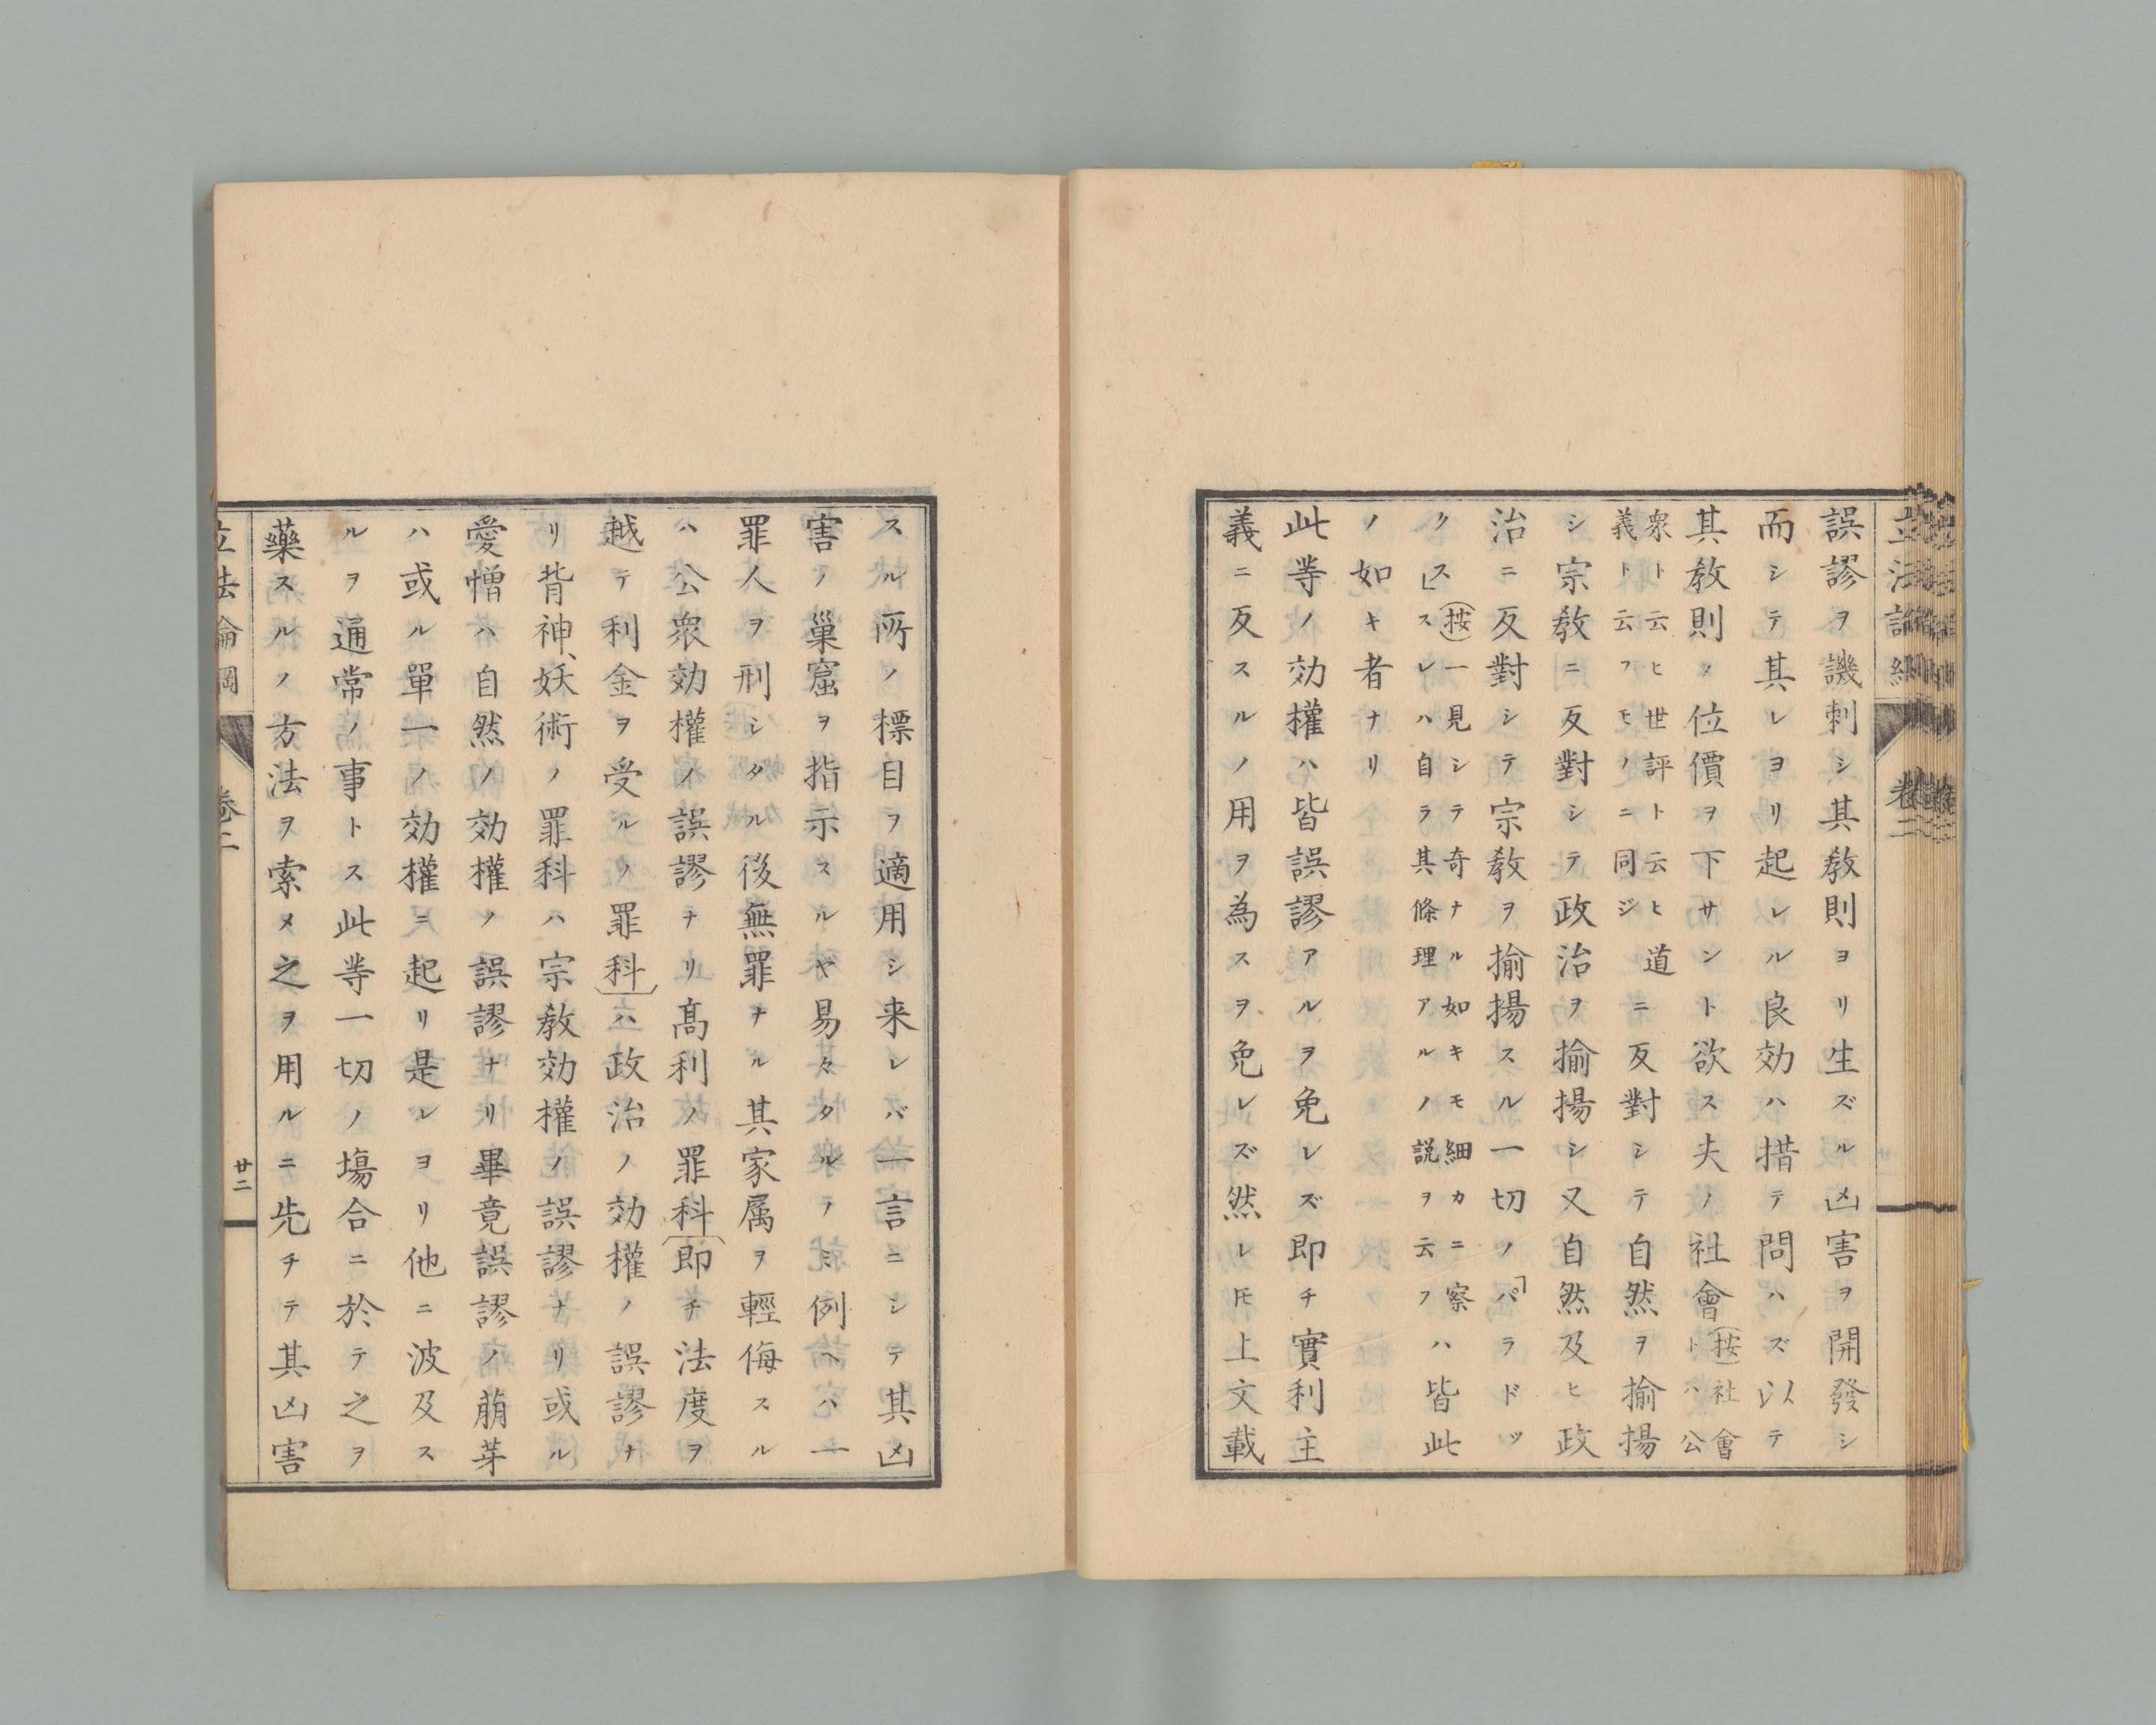 誤謬ヲ譏刺シ其教則ヨリ生ズル凶害ヲ開發シ
而シテ其レヨリ起レル良効ハ措テ問ハズ以テ
其教則ノ位價ヲ下サント欲ス夫ノ社會(按)社會トハ公
衆ト云ヒ世評ト云ヒ道義ト云フモノニ同ジニ反對シテ自然ヲ揄揚
シ宗教ニ反對シテ政治ヲ揄揚シ又自然及ヒ政
治ニ反對シテ宗教ヲ揄揚スル一切ノ「パラドッ
クス」(按)一見シテ奇ナル如キモ細カニ察スレハ自ラ其條理アルノ説ヲ云フハ皆此
ノ如キ者ナリ
此等ノ効權ハ皆誤謬アルヲ免レズ即チ實利主
義ニ反スルノ用ヲ為スヲ免レズ然レㇳ゙モ上文載
スル所ノ標目ヲ適用シ来レバ一言ニシテ其凶
害ノ巢窟ヲ指示スルヤ易々タルノミ例ヘハ一
罪人ヲ刑シタル後無罪ナル其家属ヲ輕侮スル
ハ公衆効權ノ誤謬ナリ髙利ノ罪科(即チ法度ヲ
越テ利金ヲ受ルノ罪科)ハ政治ノ効權ノ誤謬ナ
リ背神、妖術ノ罪科ハ宗教効權ノ誤謬ナリ或ル
愛憎ハ自然ノ効權ノ誤謬ナリ畢竟誤謬ノ萠芽
ハ或ル單一ノ効權ニ起リ是レヨリ他ニ波及ス
ルヲ通常ノ事トス此等一切ノ塲合ニ於テ之ヲ
藥スルノ方法ヲ索メ之ヲ用ルニ先チテ其凶害
立法論綱
卷二
廿二